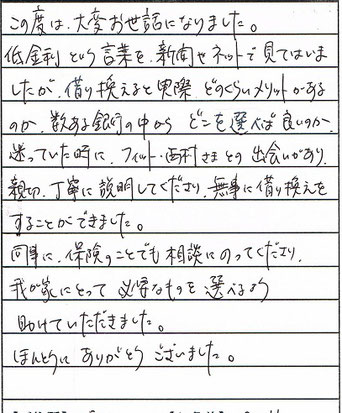 この度は、大変お世話になりました。
低金利という言葉を、新聞やネットで見てはいま
したが、借り換えると実際 どのくらいメリットがある
のか、数ある銀行の中から どこを選べば良いのか
迷っていた時に、フィット・西村さまとの出会いがあり、
親切、丁寧に説明してくださり、無事に借り換えを
することができました。
同時に、保険のことでも相談にのってくださり、
我が家にとって 必要なものを選べるよう
助けていただきました。
ほんとうに ありがとうございました。